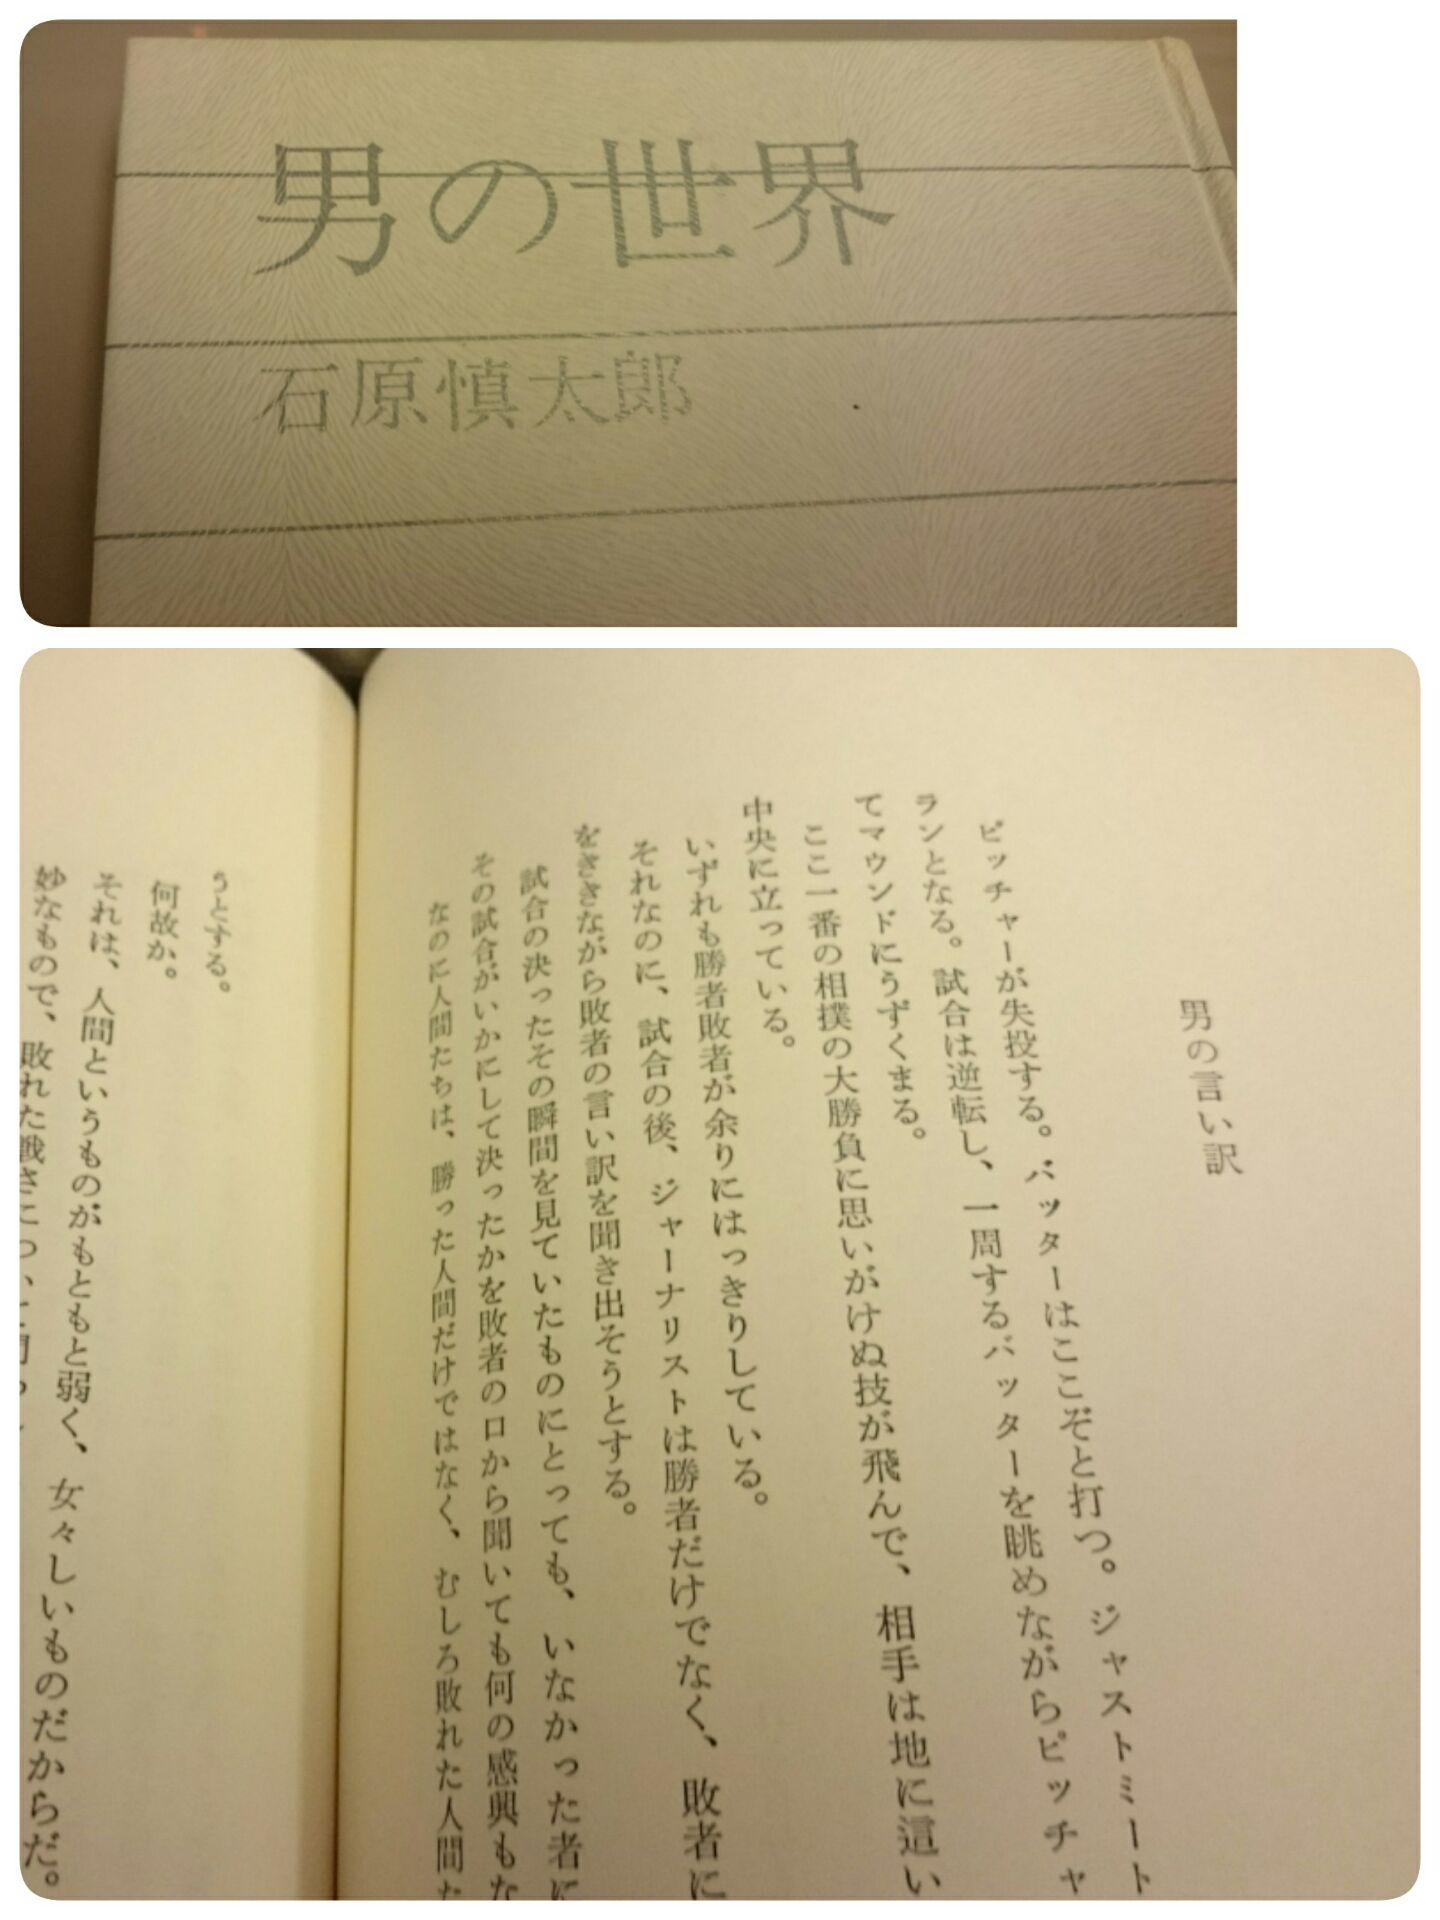 男の世界
石原慎太郎
男の言い訳
ピッチャーが失投する。バッターはここぞと打つ。ジャストミート
ランとなる。試合は逆転し、一周するバッターを眺めながらピッチャ
てマウンドにうずくまる。
ここ一番の相撲の大勝負に思いがけぬ技が飛んで、相手は地に這い
中央に立っている。
いずれも勝者敗者が余りにはっきりしている。
それなのに、試合の後、ジャーナリストは勝者だけでなく、敗者に
をききながら敗者の言い訳を聞き出そうとする。
試合の決ったその瞬間を見ていたものにとっても、いなかった者に
その試合がいかにして決ったかを敗者の口から聞いても何の感興もな
なのに人間たちは、勝った人間だけではなく、むしろ敗れた人間た
うとする。
何故か。
それは、人間というものがもともと弱く、女々しいものだからだ。
妙なもので、敗れた戦さ